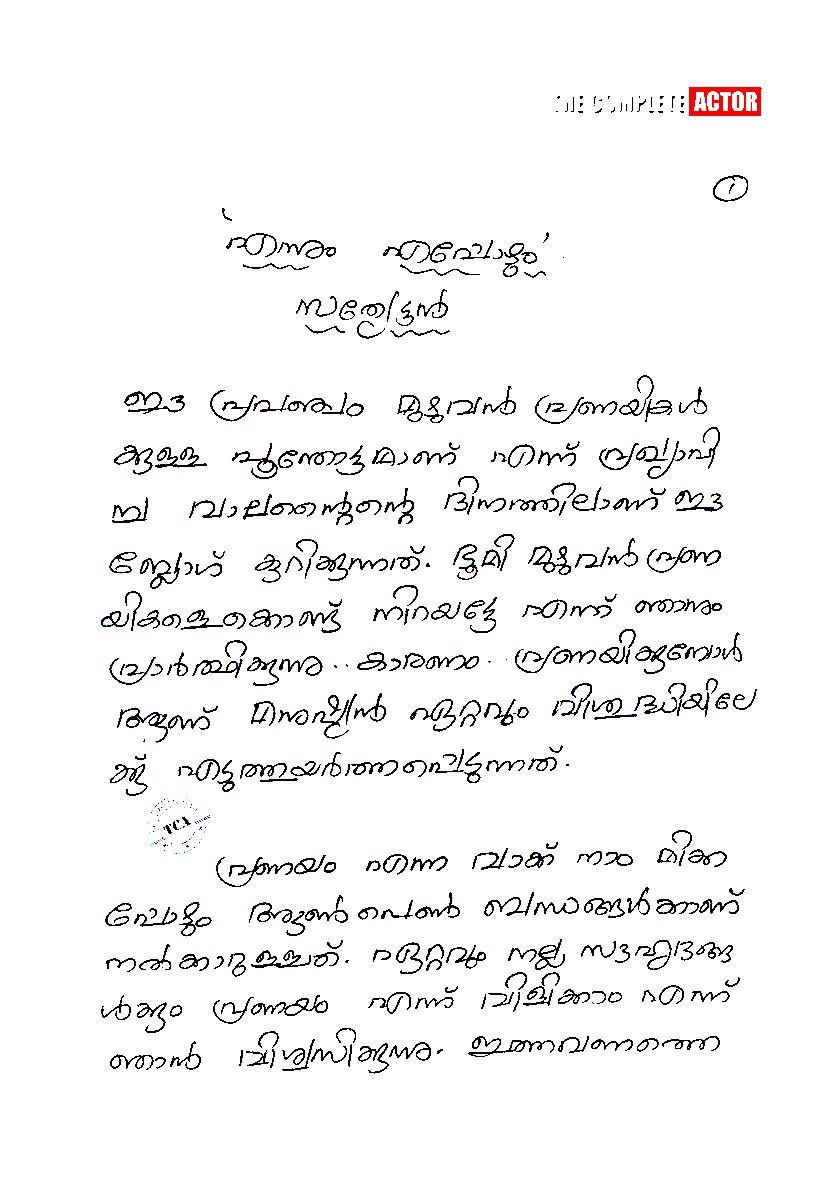 THE COMPLETE ACTOR
1
'എന്നും എപ്പോഴും'
സത്യേട്ടൻ
ഈ പ്രപഞ്ചം മുഴുവൻ പ്രണയികൾ
ക്കുള്ള പൂന്തോട്ടമാണ് എന്ന് പ്രഖ്യാപി
ച്ച വാലന്റൈന്റെ ദിനത്തിലാണ് ഈ
ബ്ലോഗ് കുറിക്കുന്നത്. ഭൂമി മുഴുവൻ പ്രണ
യികളെക്കൊണ്ട് നിറയട്ടേ എന്ന് ഞാനും
പ്രാർത്ഥിക്കുന്നു.. കാരണം. പ്രണയിക്കുമ്പോൾ
ആണ് മനുഷ്യൻ ഏറ്റവും വിശുദ്ധിയിലേ
ക്ക് എടുത്തുയർത്തപ്പെടുന്നത്.
TCA
പ്രണയം എന്ന വാക്ക് നാം മിക്ക
പ്പോഴും ആൺപെൺ ബന്ധങ്ങൾക്കാണ്
നൽകാറുള്ളത്. ഏറ്റവും നല്ല സൗഹൃദങ്ങ
ൾക്കും പ്രണയം എന്ന് വിളിക്കാം എന്ന്
ഞാൻ വിശ്വസിക്കുന്നു. ഇത്തവണത്തെ